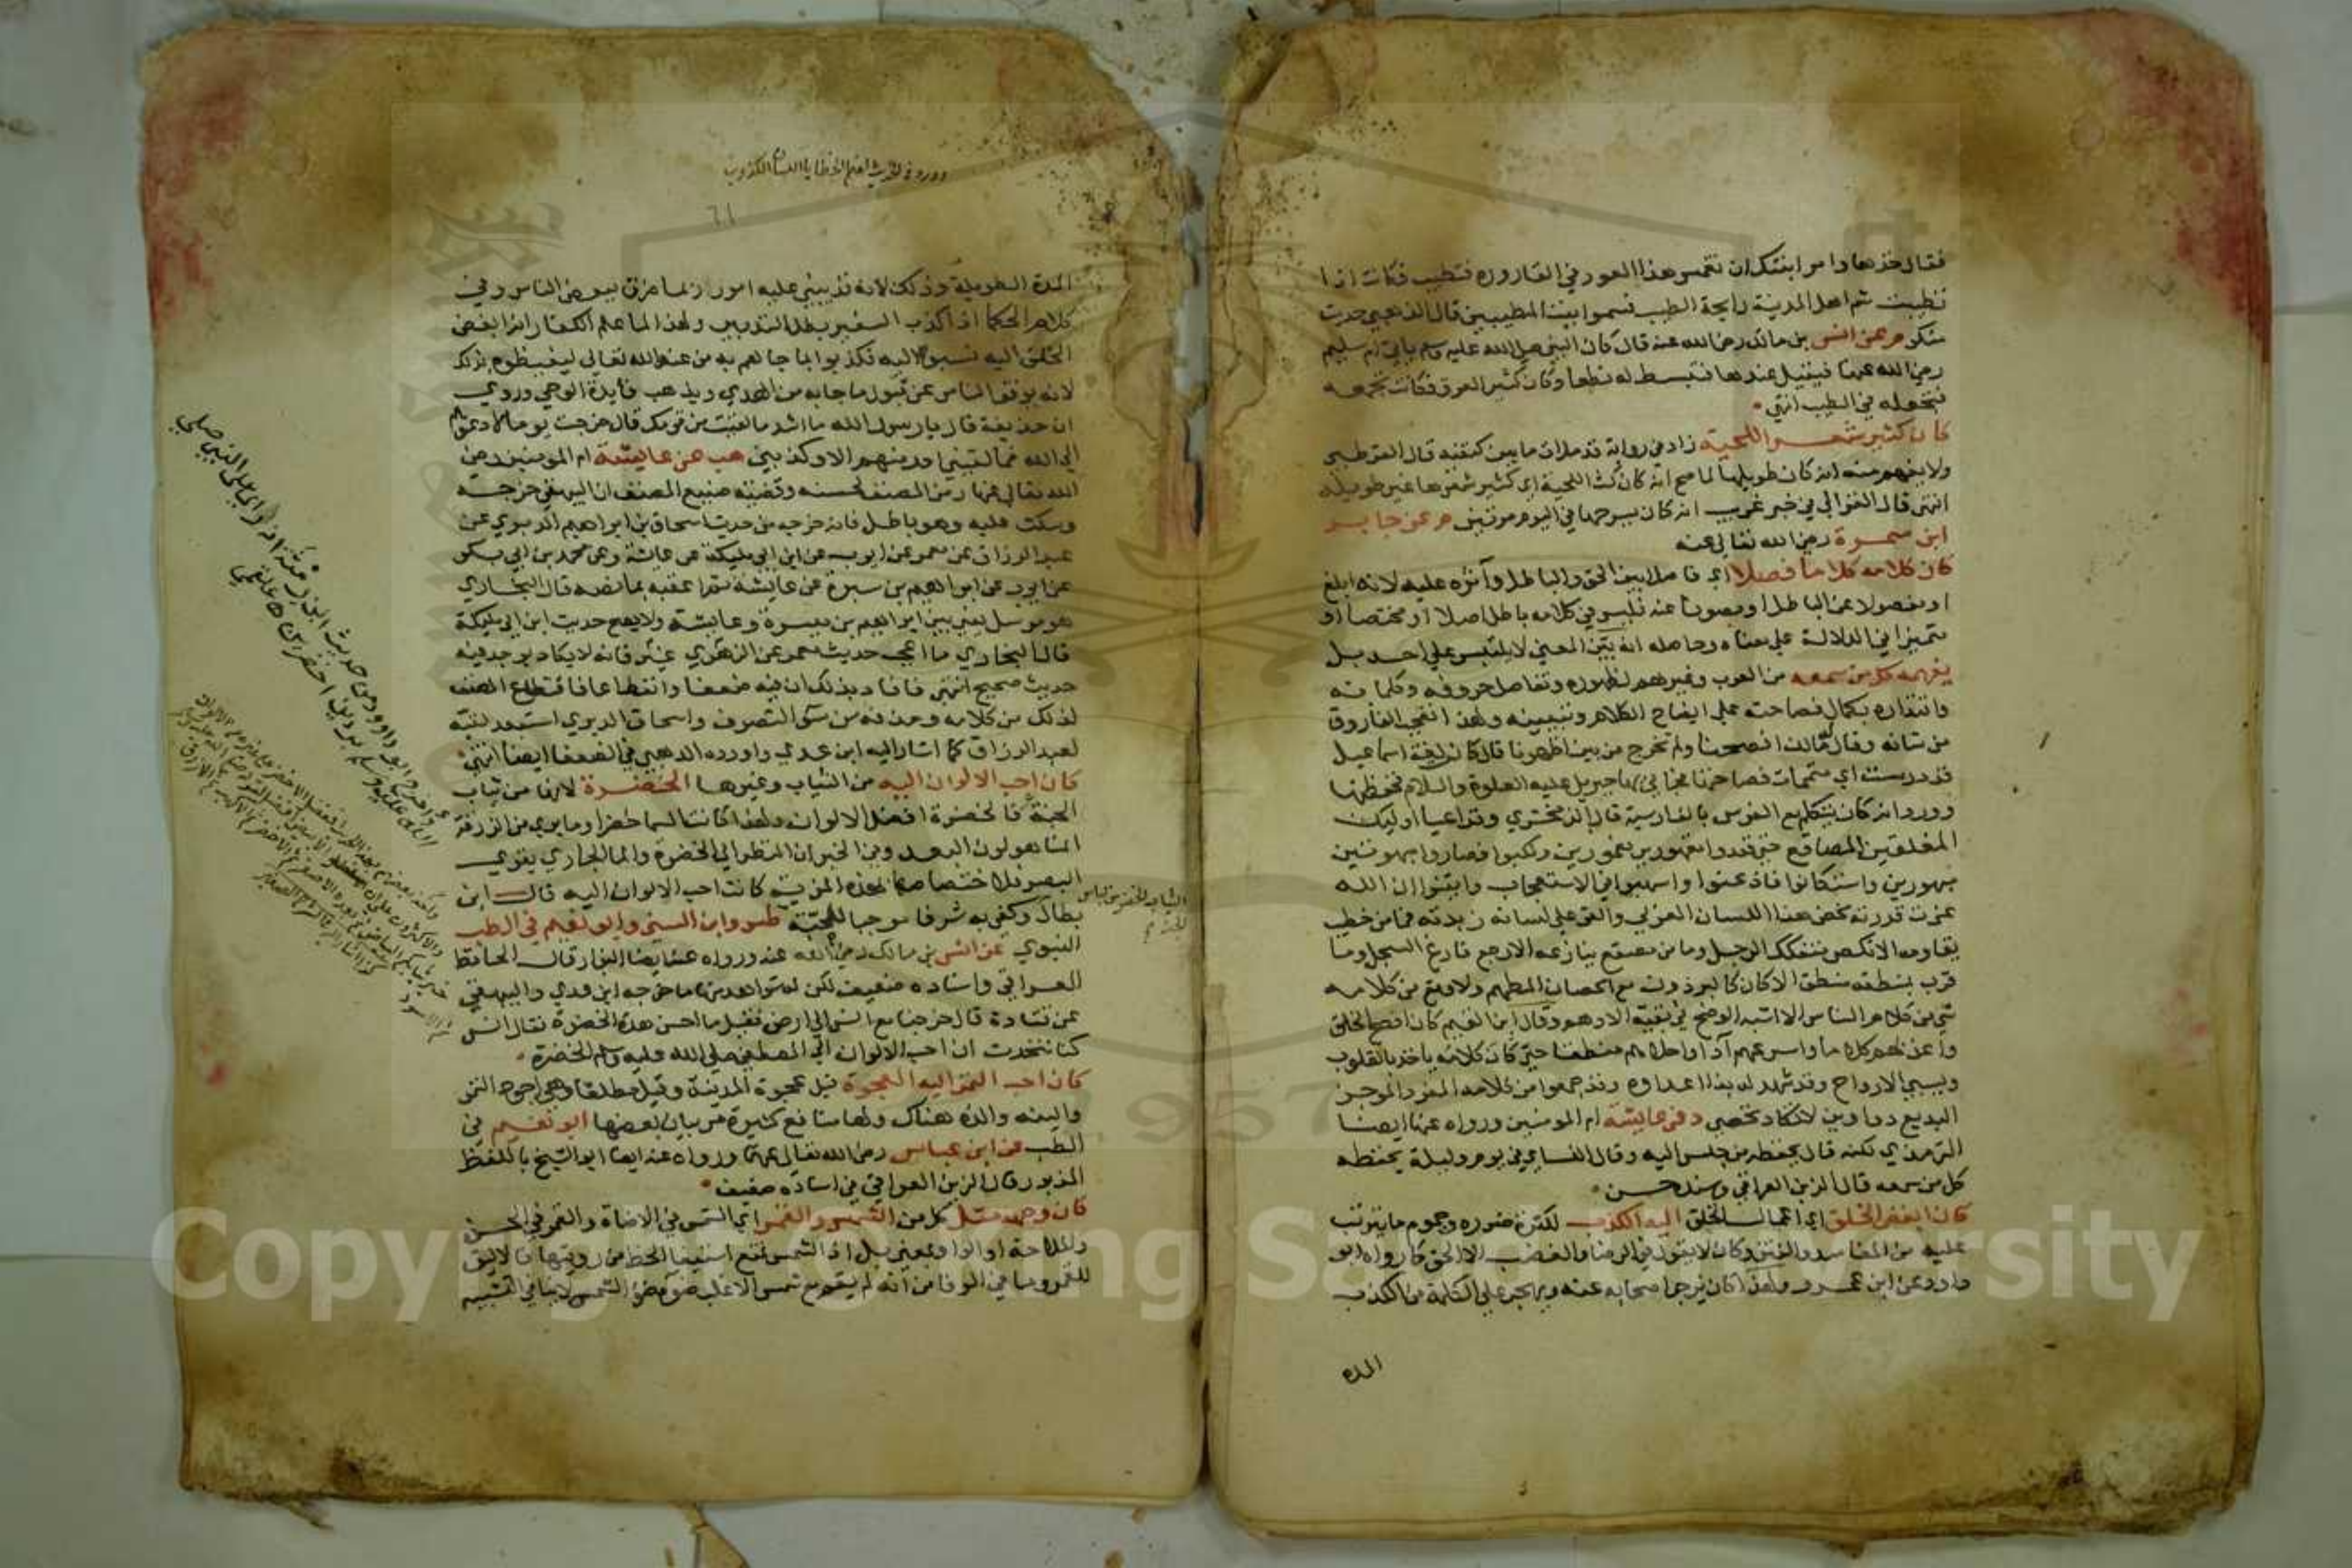 فقال خذها وامر ابنتك ان تغمس هذا العود في القارورة فتطيب فكانت اذا
تطيبت شم اهل المدينة رايحة الطيب فسموا بيت المطيبين قال الذهبي حديث
منكر م عن انس بن مالك رضي الله عنه قال كان النبي صلى الله عليه وسلم ياتي ام سليم
رضي الله عنها فيقيل عندها فتبسط له نطعا وكان كثير العرق فكانت تجمعه
فتجعله في الطيب انتهى
كان كثير شعر اللحية زاد في رواية قد ملات ما بين كتفيه قال القرطبي
ولا يفهم منه انه كان طويلها لما صح انه كان كث اللحية اي كثير شعرها غير طويله
انتهى قال الغزالي في خبر غريب انه كان يسرحها في اليوم مرتين م عن جابر
ابن سمرة رضي الله تعالى عنه
كان كلامه كلاما فصلا اي فاصلا بين الحق والباطل وآثره عليه لانه ابلغ
او مفصولا عن الباطل او مصونا عنه فليس في كلامه باطل اصلا او مختصا او
متميزا في الدلالة على معناه وحاصله انه بين المعنى لا يلتبس على احد بل
يفهمه كل من سمعه من العرب وغيرهم لظهوره وتفاصل حروفه وكلماته
واقتداره بكمال فصاحته على ايضاح الكلام وتبيينه ولهذا تعجب الفاروق
من شانه وقال مالك افصحنا ولم تخرج من بين اظهرنا قال كان لغة اسماعيل
قد درست اي متممات فصاحتها فجاءني بها جبريل عليه الصلوة والسلام فحفظتها
وورد انه كان يتكلم مع الفرس بالفارسية قال الزمخشري وقد اعيا اوليك
المفلقين المصاقع حتى قعدوا مقهورين مغمورين ونكبوا فصاروا مبهوتين
مبهورين واستكانوا فاذعنوا واسهبوا في الاستعجاب وايقنوا ان الله
عزت قدرته مخض هذا اللسان العربي والقى على لسانه زبدته فما من خطيب
يقاومه الا نكص متفكك الرجل وما من مصقع يناهزه الا رجع فارغ السجل وما
قرن بمنطقه منطق الا كان كالبرذون مع الحصان المطهم ولا وقع من كلامه
شي في كلام الناس الا اشبه الوضح في نقبة الادهم وقال ابن القيم كان افصح الخلق
واعذبهم كلاما واسرعهم آداء واحلاهم منطقا حتى كان كلامه ياخذ بالقلوب
ويسبي الارواح وقد شهد له بذا اعداوه وقد جمعوا من كلامه المفرد الموجز
البديع دواوين لا تكاد تحصى د في عايشة ام المومنين ورواه عنها ايضا
الترمذي لكنه قال يحفظه من جلس اليه وقال النسائي في يوم وليلة يحفظه
كل من سمعه قال الزين العراقي وسنده حسن
كان ابغض الخلق اي اعمال الخلق اليه الكذب لكثرة ضرره وجموم ما يترتب
عليه من المفاسد والفتن وكان لا يقول في الرضا والغضب الا الحق كما رواه ابو
داود عن ابن عمرو ولهذا كان يزجر اصحابه عنه ويهجر على الكلمة من الكذب
المدة
وورد في الحديث اعظم الخطايا اللسان الكذوب
61
المدة الطويلة وذلك لانه قد يبني عليه امورا ربما فرق بين الناس وفي
كلام الحكما اذا كذب السفير بطل التدبير ولهذا لما علم الكفار انه ابغض
الخلق اليه نسبوه اليه فكذبوا بما جاءهم به من عند الله تعالى ليغيظوه بذلك
لانه يوقف الناس عن قبول ما جا به من الهدى ويذهب فايدة الوحي وروي
ان حذيفة قال يا رسول الله ما اشد ما لقيت من قومك قال خرجت يوما لادعوهم
الى الله فما لقيني احد منهم الا وكذبني هب عن عايشة ام المومنين رضي
الله تعالى عنها رمز المصنف لحسنه وقضية صنيع المصنف ان البيهقي خرجه
وسكت عليه وهو باطل فانه خرجه من حديث اسحاق بن ابراهيم الدبري عن
عبد الرزاق عن معمر عن ايوب عن ابن ابي مليكة عن عائشة وعن محمد بن ابي بكر
عن ايوب عن ابراهيم بن ميسرة عن عايشة ثم اعقبه بما نصه قال البخاري
هو مرسل يعني بين ابراهيم بن ميسرة وعايشة ولا يصح حديث ابن ابي مليكة
قال البخاري ما اعجب حديث معمر عن الزهري غيره فانه لا يكاد يوجد فيه
حديث صحيح انتهى فافاد بذلك ان فيه ضعفا وانقطاعا فاقتطاع المصنف
لذلك من كلامه وحذفه من سوء التصرف واسحاق الدبري استصغر لقيه
لعبد الرزاق كما اشار اليه ابن عدي واورده الذهبي في الضعفا ايضا انتهى
كان احب الالوان اليه من الثياب وغيرها الخضرة لانها من ثياب
الجنة فالخضرة افضل الالوان ولهذا كانت السما خضرا وما يرى من الزرقة
انما هو لون البعد وفي الخبر ان النظر الى الخضرة والما الجاري يقوي
البصر فلاختصاصها بهذه المزية كانت احب الالوان اليه قال ابن
بطال وكفى به شرفا موجبا للمحبة طس وابن السني وابو نعيم في الطب
النبوي عن انس بن مالك رضي الله عنه ورواه عنه ايضا البزار قال الحافظ
العراقي واسناده ضعيف لكن له شواهد منها ما خرجه ابن عدي والبيهقي
عن قتادة قال خرجنا مع انس الى ارض فقيل ما احسن هذه الخضرة فقال انس
كنا نتحدث ان احب الالوان الى المصطفى صلى الله عليه وسلم الخضرة
كان احب التمر اليه العجوة قيل عجوة المدينة وقيل مطلقا وهي اجود التمر
والينه والذه هناك ولها منافع كثيرة مر بيان بعضها ابو نعيم في
الطب عن ابن عباس رضي الله تعالى عنهما ورواه عنه ايضا ابو الشيخ باللفظ
المذبور قال الزين العراقي في اسناده ضعيف
كان وجهه مثل كل من الشمس والقمر اي الشمس في الاضاة والقمر في الحسن
والملاحة او الواو بمعنى بل اذ الشمس تمنع استيفا الحظ من رويتها فاللايق
للقمر وما في الوفا من انه لم يقم مع شمس الا غلب ضوءه ضو الشمس لا ينافي التشبيه
الثياب الخضر من لباس
الجنة
واخرج ابو داود من حديث ابي رمثة انه راى على النبي صلى
الله عليه وسلم بردين اخضرين علقمي